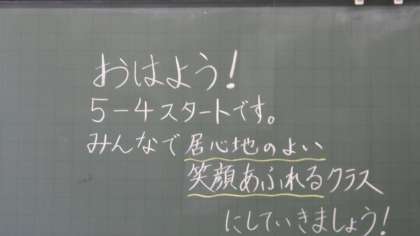 おはよう!
5-4スタートです。
みんなで居心地のよい
笑顔あふれるクラス
にしていきましょう!